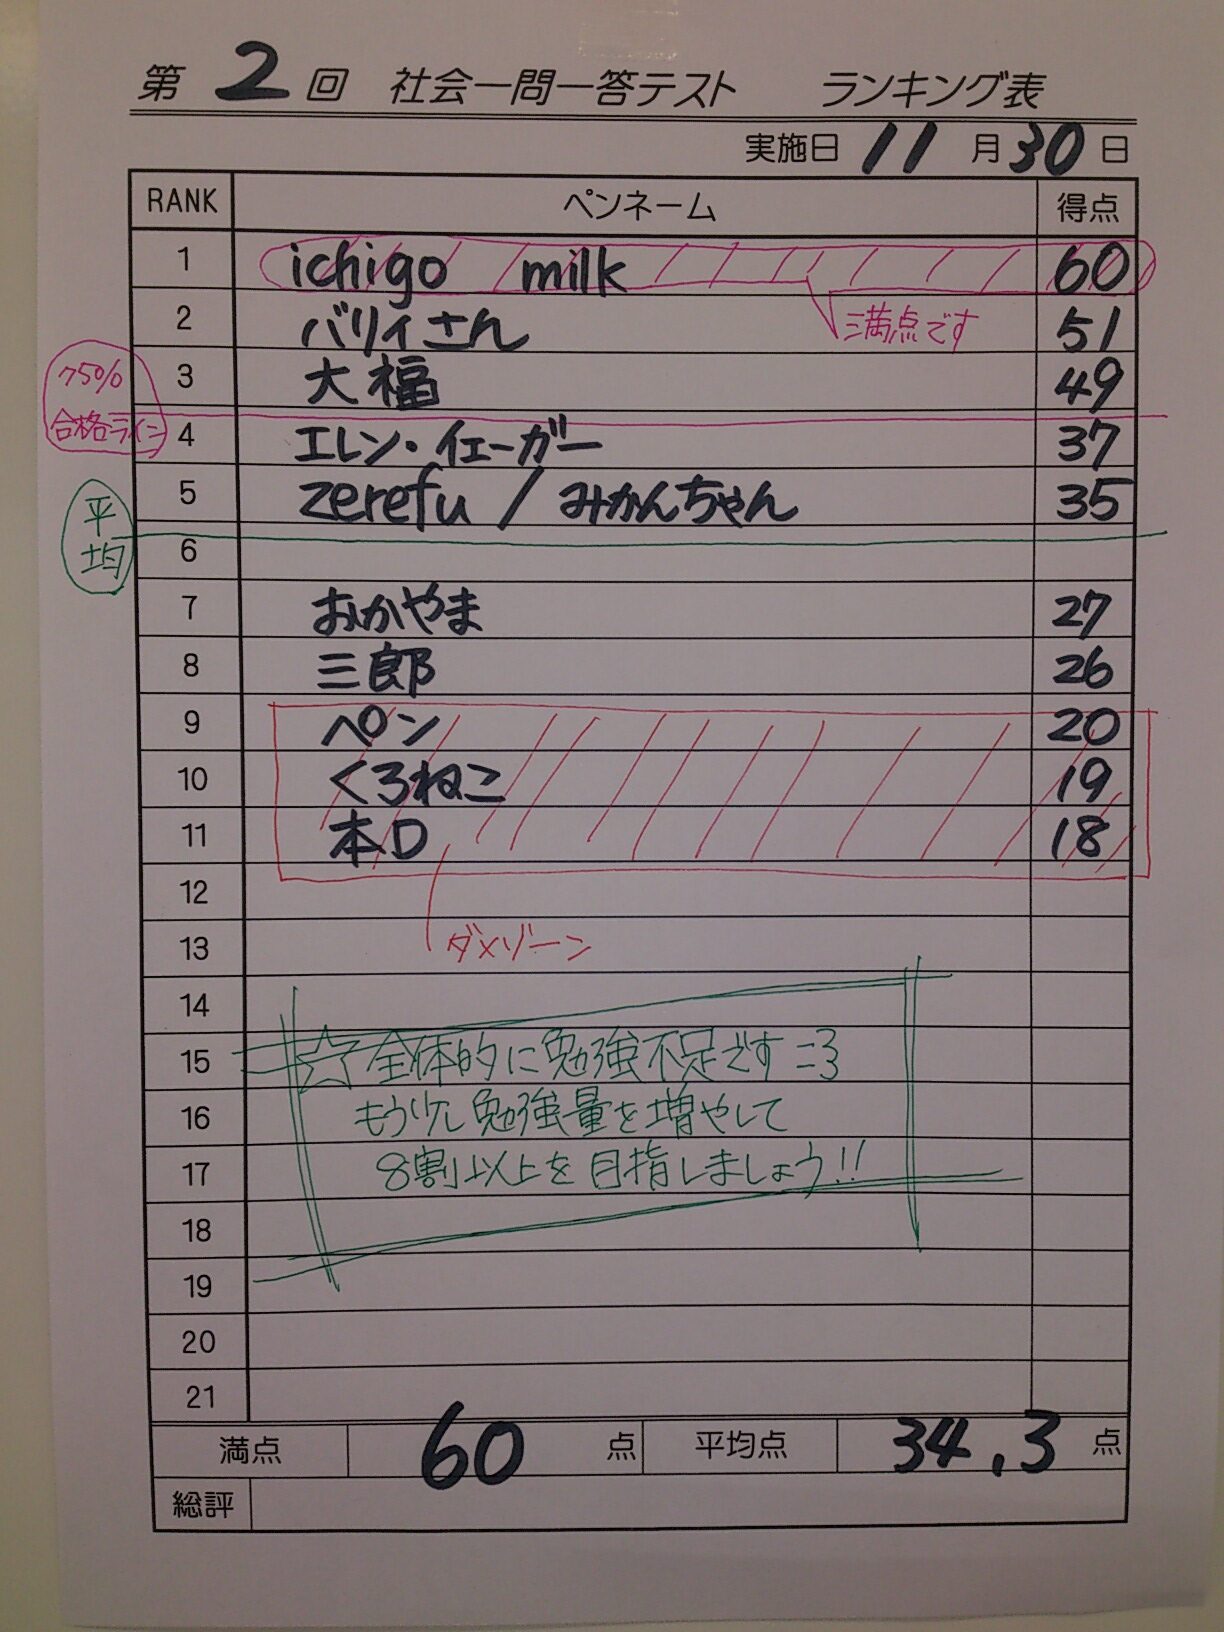 第 2 回 社会一問一答テスト ランキング表
実施日 11 月 30 日
RANK ペンネーム 得点
1 ichigo milk 60
満点です
2 バリィさん 51
3 大福 49
75%
合格ライン
4 エレン・イェーガー 37
5 zerefu / みかんちゃん 35
平均
6
7 おかやま 27
8 三郎 26
9 ペン 20
10 くろねこ 19
11 本D 18
12
13
ダメゾーン
14
15 ☆全体的に勉強不足です =3
16 もう少し勉強量を増やして
17 8割以上を目指しましょう!!
18
19
20
21
満点 60 点 平均点 34.3 点
総評